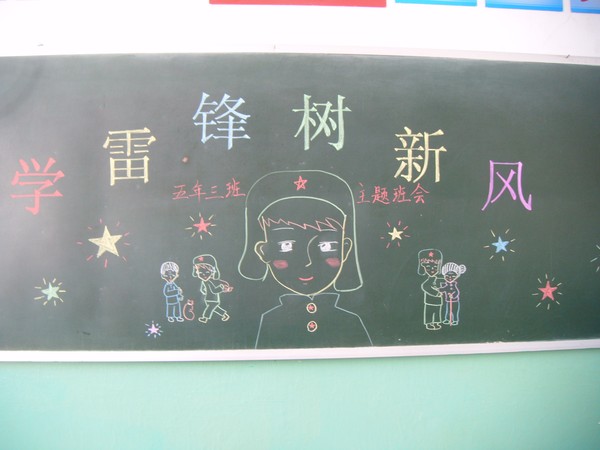 学雷锋树新风
五年三班 主题班会